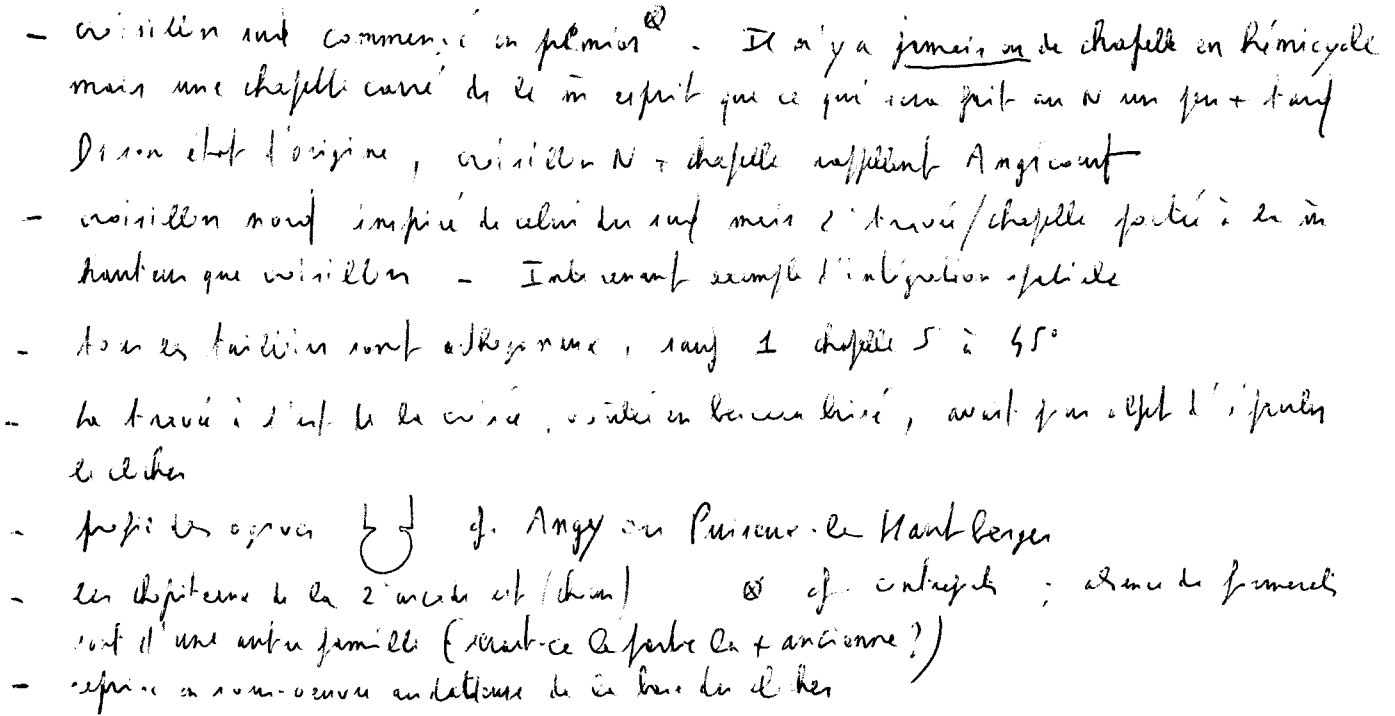 - croisillon sud commencé en premier ⊗. Il n'y a jamais eu de chapelle en hémicycle
mais une chapelle carré ds le m̄ esprit que ce qui sera fait au N un peu + tard
Ds son état d'origine, croisillon N + chapelle rappellent Angicourt
- croisillon nord inspiré de celui du sud mais 2e travée/chapelle portée à la m̄
hauteur que croisillon - Intéressant exemple d'intégration spatiale
- tous les tailloirs sont orthogonaux, sauf 1 chapelle S à 45°
- La travée à l'est de la croisée, voûtée en berceau brisé, avait pour objet d'épauler
le clocher
- profil des ogives cf. Angy ou Puiseux-le-Hautberger
- les chapiteaux de la 2e arcade est (chœur) ⊗ cf contreforts ; absence de formerets
sont d'une autre famille (serait-ce la partie la + ancienne ?)
- reprise en sous-oeuvre audatieuse de la base du clocher